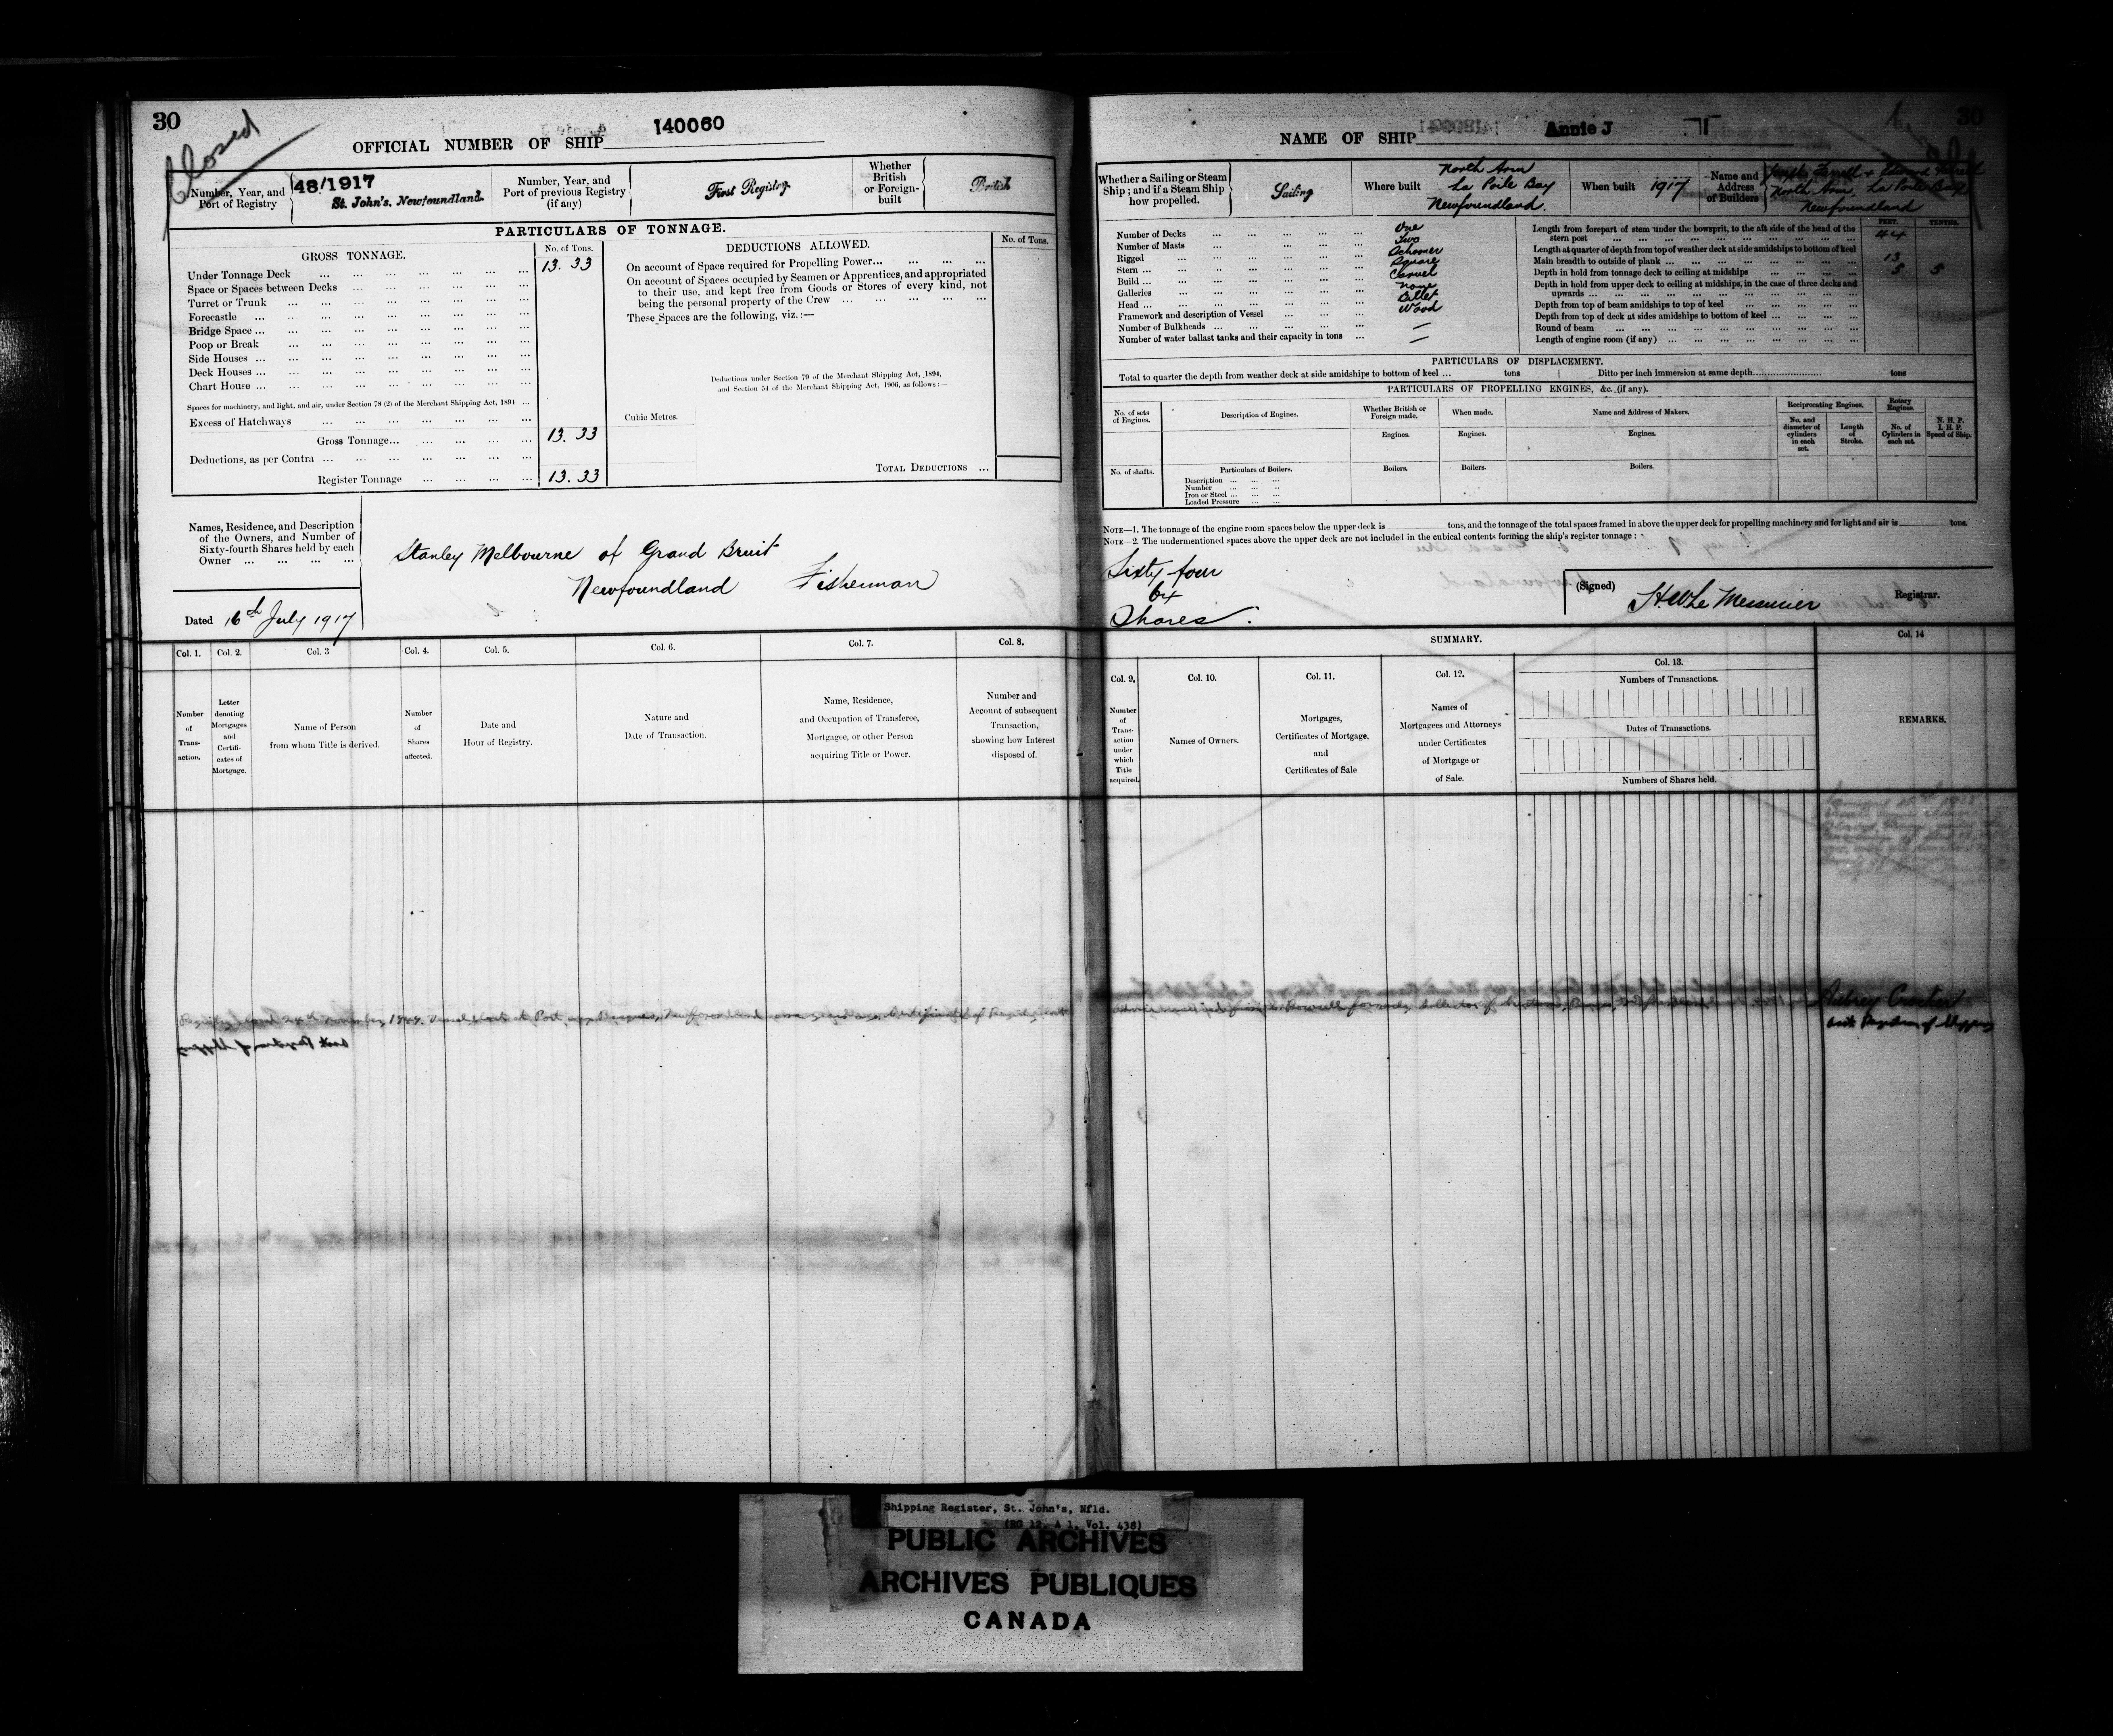 30
Closed
OFFICIAL NUMBER OF SHIP 140060
Number, Year, and Port of Registry
48/1917
St. John's. Newfoundland.
Number, Year, and Port of previous Registry (if any)
First Registry
Whether British or Foreign-built
British
PARTICULARS OF TONNAGE.
GROSS TONNAGE.
No. of Tons.
Under Tonnage Deck ... 13. 33
Space or Spaces between Decks ...
Turret or Trunk ...
Forecastle ...
Bridge Space ...
Poop or Break ...
Side Houses ...
Deck Houses ...
Chart House ...
Spaces for machinery, and light, and air, under Section 78 (2) of the Merchant Shipping Act, 1894 ...
Excess of Hatchways ...
Gross Tonnage ... 13. 33
Deductions, as per Contra ...
Register Tonnage ... 13. 33
DEDUCTIONS ALLOWED.
No. of Tons.
On account of Space required for Propelling Power ...
On account of Spaces occupied by Seamen or Apprentices, and appropriated
to their use, and kept free from Goods or Stores of every kind, not
being the personal property of the Crew ...
These Spaces are the following, viz. :—
Deductions under Section 79 of the Merchant Shipping Act, 1894,
and Section 54 of the Merchant Shipping Act, 1906, as follows :—
Cubic Metres.
TOTAL DEDUCTIONS ...
Names, Residence, and Description
of the Owners, and Number of
Sixty-fourth Shares held by each
Owner ...
Stanley Melbourne of Grand Bruit
Newfoundland Fisherman
Dated 16th July 1917
Col. 1.
Number of Transaction.
Col. 2.
Letter denoting Mortgages and Certificates of Mortgage.
Col. 3
Name of Person from whom Title is derived.
Col. 4.
Number of Shares affected.
Col. 5.
Date and Hour of Registry.
Col. 6.
Nature and Date of Transaction.
Col. 7.
Name, Residence, and Occupation of Transferee, Mortgagee, or other Person acquiring Title or Power.
Col. 8.
Number and Account of subsequent Transaction, showing how Interest disposed of.
Registry closed 24th November 1949. Vessel lost at Port aux Basques, Newfoundland Certificate of Registry lost
30
NAME OF SHIP Annie J
Whether a Sailing or Steam Ship ; and if a Steam Ship how propelled.
Sailing
Where built
North Arm
La Poile Bay
Newfoundland.
When built 1917
Name and Address of Builders
Joseph Farrell & Edward Farrell
North Arm, La Poile Bay
Newfoundland
Number of Decks ... One
Number of Masts ... Two
Rigged ... Schooner
Stern ... Square
Build ... Carvel
Galleries ... None
Head ... Billet
Framework and description of Vessel ... Wood
Number of Bulkheads ... —
Number of water ballast tanks and their capacity in tons ... —
FEET. TENTHS.
Length from forepart of stem under the bowsprit, to the aft side of the head of the
stern post ... 44
Length at quarter of depth from top of weather deck at side amidships to bottom of keel
Main breadth to outside of plank ... 13
Depth in hold from tonnage deck to ceiling at midships ... 5 5
Depth in hold from upper deck to ceiling at midships, in the case of three decks and
upwards ...
Depth from top of beam amidships to top of keel ...
Depth from top of deck at sides amidships to bottom of keel ...
Round of beam ...
Length of engine room (if any) ...
PARTICULARS OF DISPLACEMENT.
Total to quarter the depth from weather deck at side amidships to bottom of keel ... tons
Ditto per inch immersion at same depth ... tons
PARTICULARS OF PROPELLING ENGINES, &c. (if any).
No. of sets of Engines.
Description of Engines.
Whether British or Foreign made.
When made.
Name and Address of Makers.
Reciprocating Engines.
No. and diameter of cylinders in each set.
Length of Stroke.
Rotary Engines.
No. of Cylinders in each set.
N. H. P.
I. H. P.
Speed of Ship.
Engines. Engines. Engines.
No. of shafts.
Particulars of Boilers.
Boilers. Boilers. Boilers.
Description ...
Number ...
Iron or Steel ...
Loaded Pressure ...
NOTE—1. The tonnage of the engine room spaces below the upper deck is tons, and the tonnage of the total spaces framed in above the upper deck for propelling machinery and for light and air is tons.
NOTE—2. The undermentioned spaces above the upper deck are not included in the cubical contents forming the ship's register tonnage :
Sixty four
64
Shares.
(Signed) H.W. Le Messurier Registrar.
SUMMARY.
Col. 9.
Number of Transaction under which Title acquired.
Col. 10.
Names of Owners.
Col. 11.
Mortgages, Certificates of Mortgage, and Certificates of Sale
Col. 12.
Names of Mortgagees and Attorneys under Certificates of Mortgage or of Sale.
Col. 13.
Numbers of Transactions.
Dates of Transactions.
Numbers of Shares held.
Col. 14
REMARKS.
Aubrey Crocker
asst Registrar of Shipping
Shipping Register, St. John's, Nfld.
(RG 12, A 1, Vol. 438)
PUBLIC ARCHIVES
ARCHIVES PUBLIQUES
CANADA